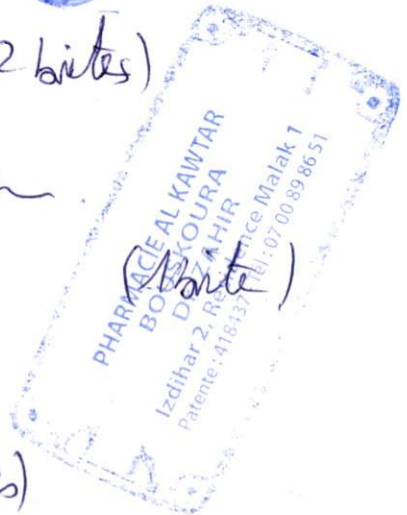 2 boites)
PHARMACIE AL KAWTAR
BOUSKOURA
(1 boite)
Izdihar 2, Residence Malak 1
Patente : 418437 Tel : 07 00 89 86 51